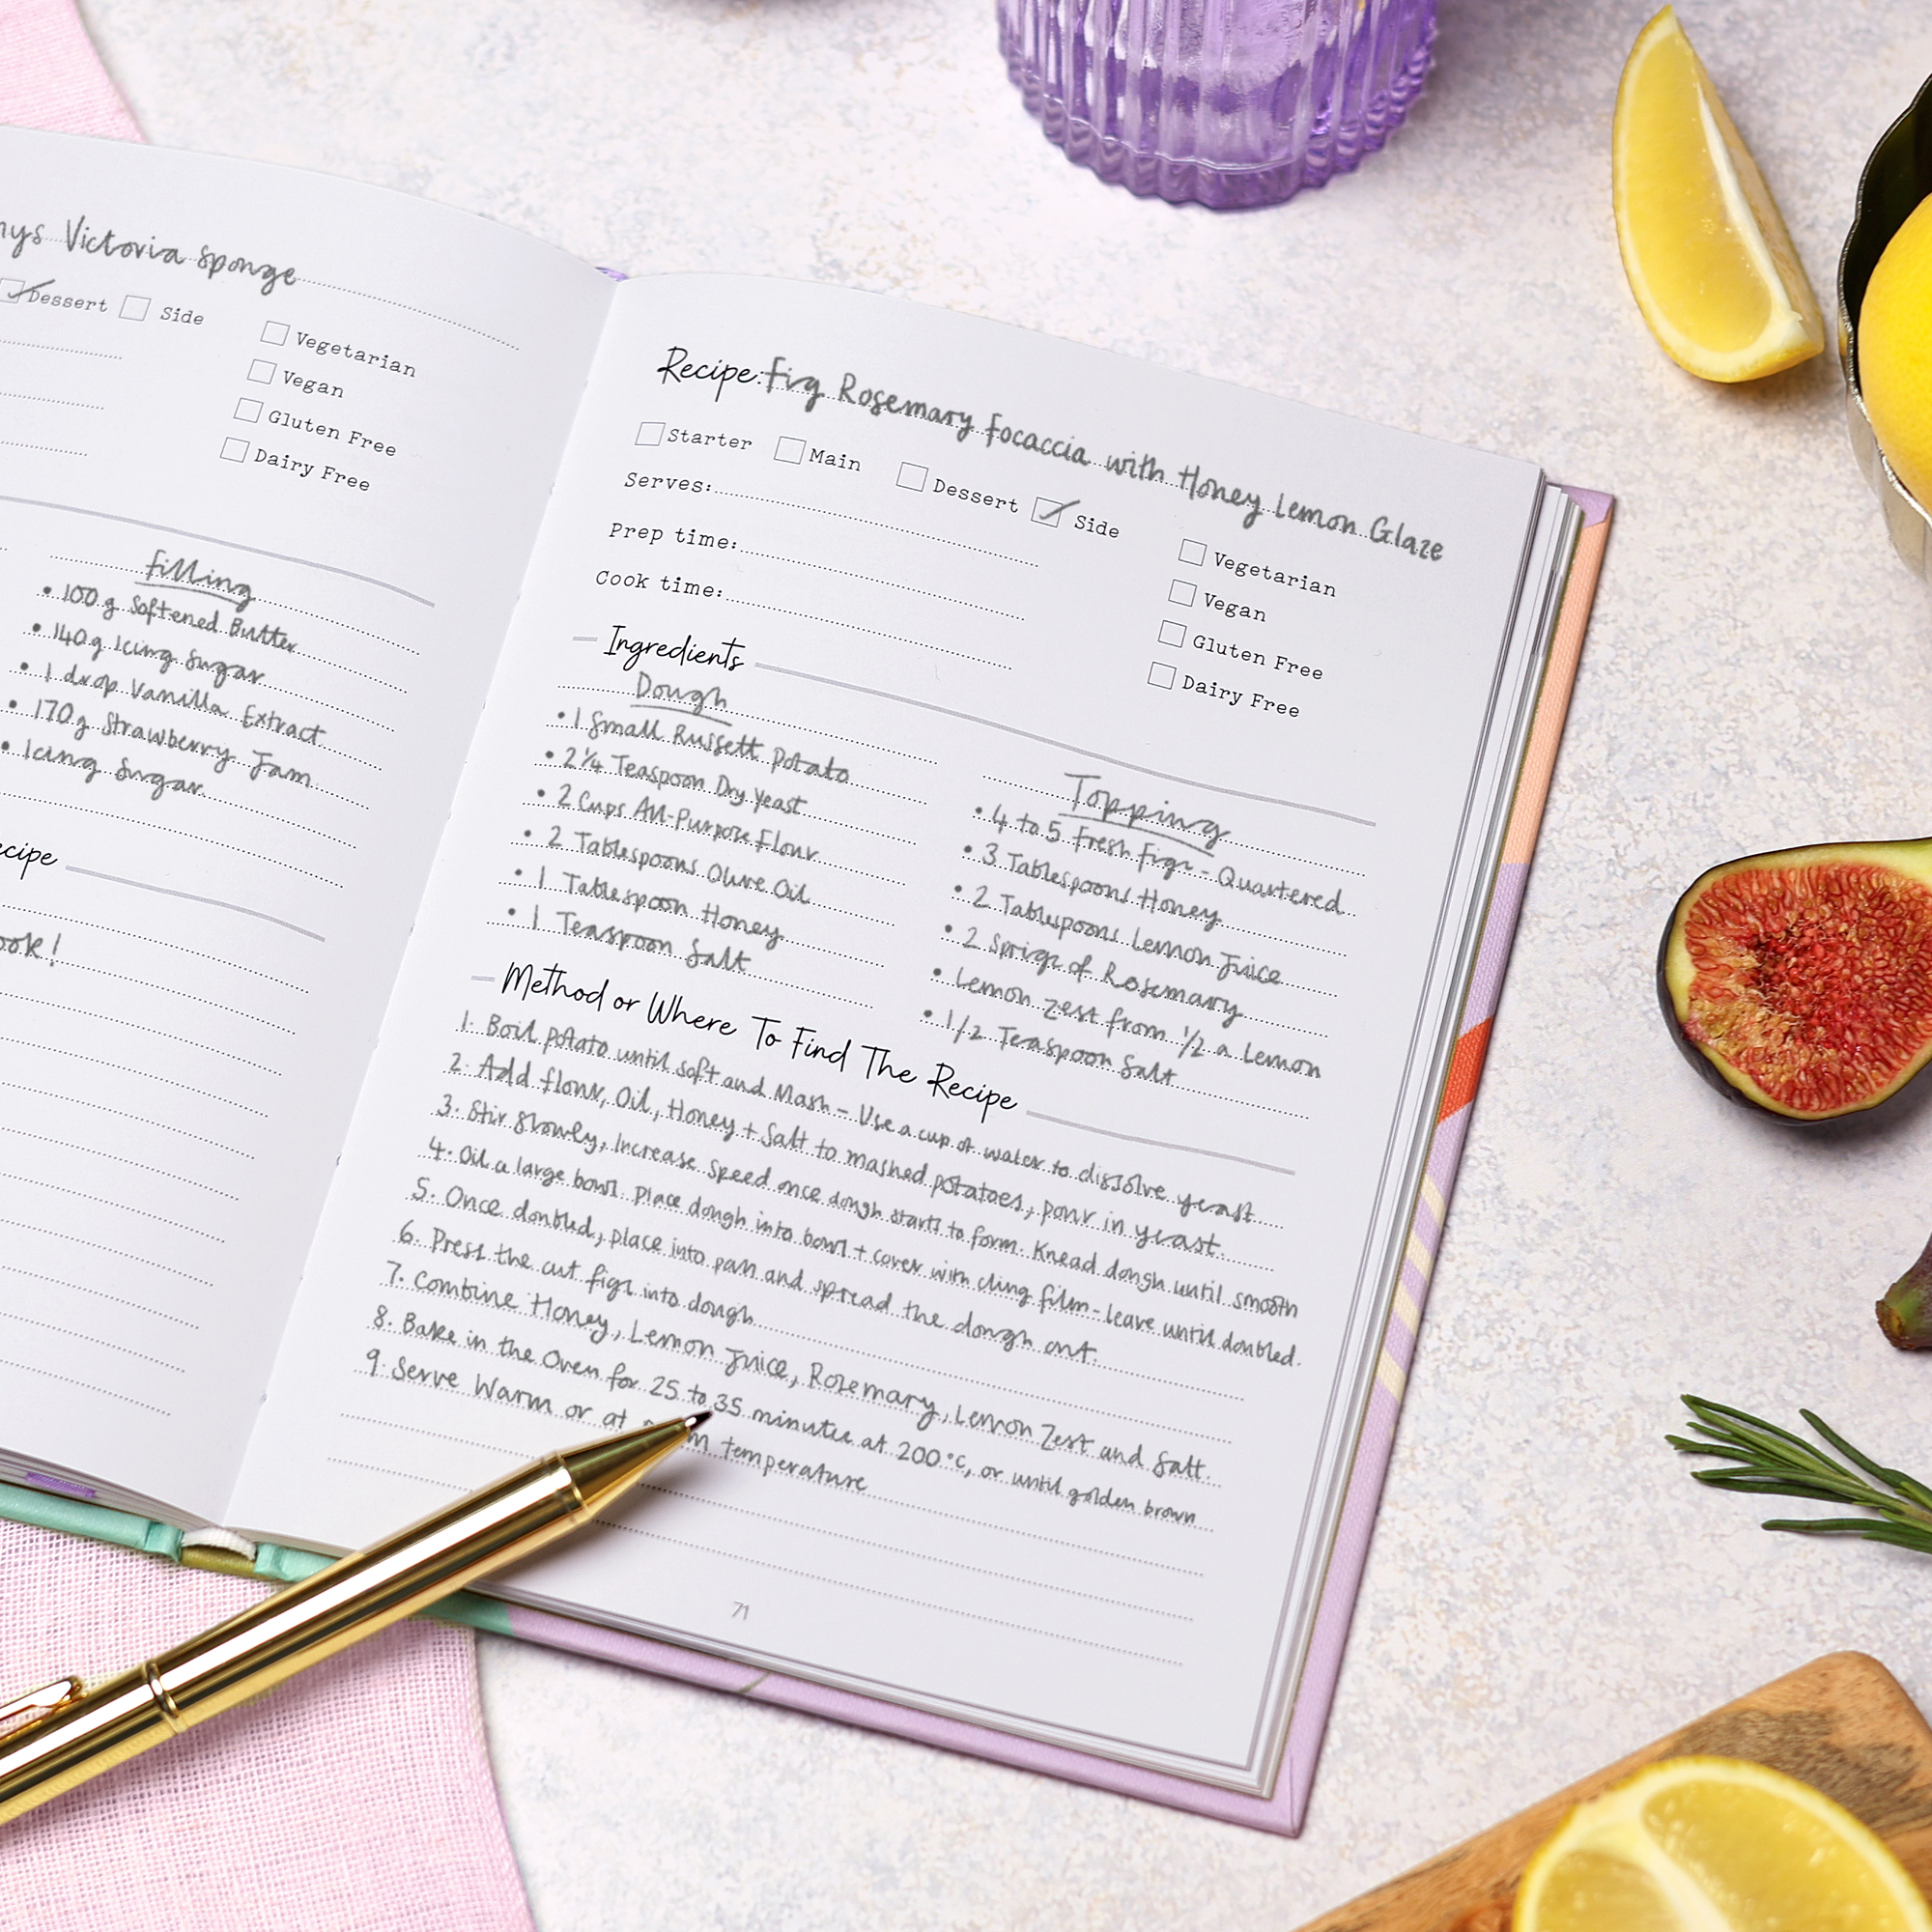 Victoria sponge
Dessert Side
Vegetarian
Vegan
Gluten Free
Dairy Free
filling
• 100g Softened Butter
• 140g Icing Sugar
• 1 drop Vanilla Extract
• 170g Strawberry Jam
• Icing Sugar
Recipe: Fig Rosemary Focaccia with Honey Lemon Glaze
Starter Main Dessert Side
Serves:
Prep time:
Cook time:
Vegetarian
Vegan
Gluten Free
Dairy Free
Ingredients
Dough
• 1 Small Russett Potato
• 2 1/4 Teaspoon Dry Yeast
• 2 Cups All-Purpose Flour
• 2 Tablespoons Olive Oil
• 1 Tablespoon Honey
• 1 Teaspoon Salt
Topping
• 4 to 5 Fresh Figs - Quartered
• 3 Tablespoons Honey
• 2 Tablespoons Lemon Juice
• 2 Sprigs of Rosemary
• Lemon Zest from 1/2 a Lemon
• 1/2 Teaspoon Salt
Method or Where To Find The Recipe
1. Boil potato until soft and Mash - Use a cup of water to dissolve yeast
2. Add flour, Oil, Honey + Salt to mashed potatoes, pour in yeast.
3. Stir slowly, increase speed once dough starts to form. Knead dough until smooth
4. Oil a large bowl. Place dough into bowl + cover with cling film - leave until doubled.
5. Once doubled, place into pan and spread the dough out.
6. Press the cut figs into dough
7. Combine Honey, Lemon Juice, Rosemary, Lemon Zest and Salt.
8. Bake in the Oven for 25 to 35 minutes at 200°c, or until golden brown
9. Serve Warm or at temperature
71